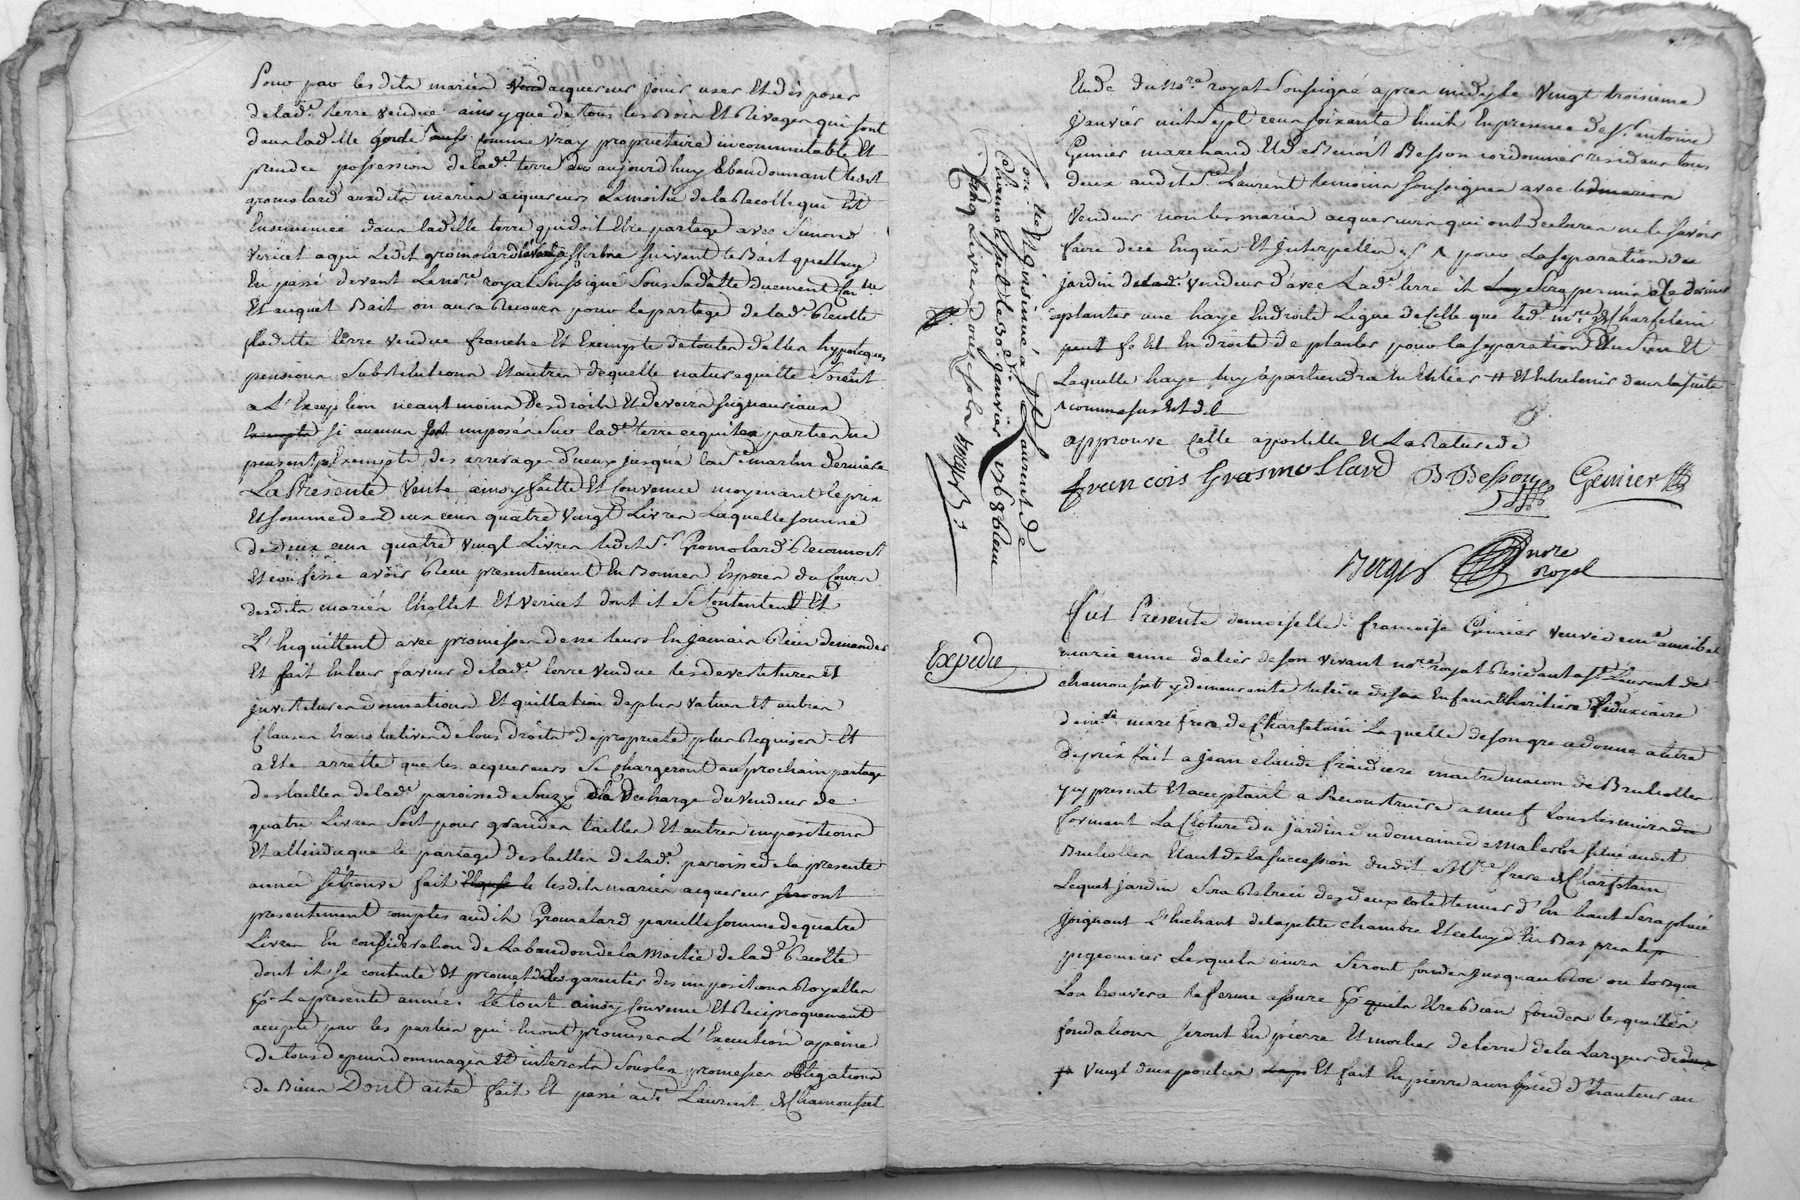 Pour par lesdits mariés acquereurs jouir user Et disposer
de lad.e terre vendue ainsy que de tous les Bois Et Rivages qui sont
dans laditte comme vray proprietaire incommutable Et
prendre possession de lad.e terre des aujourdhuy abandonnant ledit
gromolard auxdits mariés acquereurs La moitié de la Recolte qui Est
Ensemencée dans laditte terre qui doit Etre partagé avec Simond
Vericet a qui Ledit gromolard suivant le Bait quelluy
En passé devent Le no.re royal Soussigné Sous Sa datte duement
Et auquel Bait on aura Recours pour le partage de lad.e Recolte
laditte terre vendue franche Et Exempte de toutes dettes hypoteques
pensions Substitutions Et autres de quelle nature quelle Soient
a L'Exception neantmoins des droits Et devoirs seigneuriaux
si aucuns imposés Sur lad.e terre
Exempte des arrerages d'iceux jusqu'a la S.t martin derniere
La Presente Vente ainsy faitte Et Convenue moyenant le prix
Et somme de deux cent quatre Vingt Livres Laquelle somme
de deux cent quatre Vingt Livres ledit S.r Gromolard Reconnoit
Et confesse avoir Reçue presentement En Bonnes Especes du Cours
desdits mariés Chollet Et Vericet dont il Se Contente Et
L'En quittent avec promesse de ne leurs En jamais Rien demander
Et fait En leur faveur de lad.e terre vendue les devestitures Et
investitures donnations Et quittation de plus values Et autres
Clauses translatives de tous droits de proprieté plus Requises Et
a Eté arretté que les acquereurs Se Chargeront au prochain partage
des tailles de lad.e paroisse de Souzy a la decharge du Vendeur de
quatre Livres Soit pour grandes tailles Et autres impositions
Et attendu que le partage des tailles de lad.e paroisse de la presente
année se trouve fait lesdits mariés acquereurs ont
presentement comptés audit Gromolard pareille somme de quatre
Livres En consideration de L'abandon de la Moitié de lad.e Recolte
dont il se contente Et promet de les garentir des impositions Royalles
p.r La presente année. le tout ainsy Convenu Et Reciproquement
accepté par les parties qui En ont promises L'Execution a peine
de tous depens dommages Et interests Sous les promesses obligations
de Biens Dont acte fait Et passé aud.t S.t Laurent de Chamousset
Etude du no.re royal Soussigné apres midy le Vingt troisieme
janvier mil sept cent soixante huit En presence de S.r antoine
Genier marchand Et de Benoit Besson cordonnier residens tous
deux audit S.t Laurent temoins soussignés avec le
Vendeur non les mariés acquereurs qui ont declarés ne le sçavoir
faire de ce Enquis Et Interpellés pour La separation du
jardin dud. Vendeur d'avec Lad.e terre il Sera permis
a planter une haye En droite Ligne de Celle que led. m.re de Charfetain
En droit de planter pour la separation du Sien Et
Laquelle haye luy apartiendra En Entier Et Entretenir dans la suite
comme sus Est dit
approuvé Cette apostille Et La Rature de
francois Grasmollard B Besson Genier
Berger no.re royal
Con.lé Et insinué a S.t Laurent de
Chamousset le 30.e janvier 1768 Reçu
Cinq Livres
Expedié
Fut Presente demoiselle francoise Genier veuve de m.e annibal
marie anne dalier de son vivant no.re royal Residant a S.t Laurent de
chamousset y demeurante tutrice de ses Enfans Et heritiere fiduciaire
de m.re frere de Charfetain Laquelle de son gré a donné a titre
de prix fait a jean claude fraidiere maitre macon de Brullioles
y present Et acceptant a Reconstruire a neuf tous les murs
formant La Cloture du jardin du domaine de malerbe situé audit
Brullioles Etant de la succession dudit M.re frere de Charfetain
Lequel jardin Sera Retreci des deux cotés le mur d'En haut Sera placé
joignant L'Enchant de la petite chambre Et celuy d'En Bas pres le
pigeonnier Lesquels murs Seront fondés jusqu'au Roc ou lorsque
L'on trouvera le ferme assuré p.r Etre Bien fondés lesquelles
fondations Seront En pierre Et mortier de terre de la Largeur de
Vingt deux pouces Et fait En pierre a un pied d'hauteur au